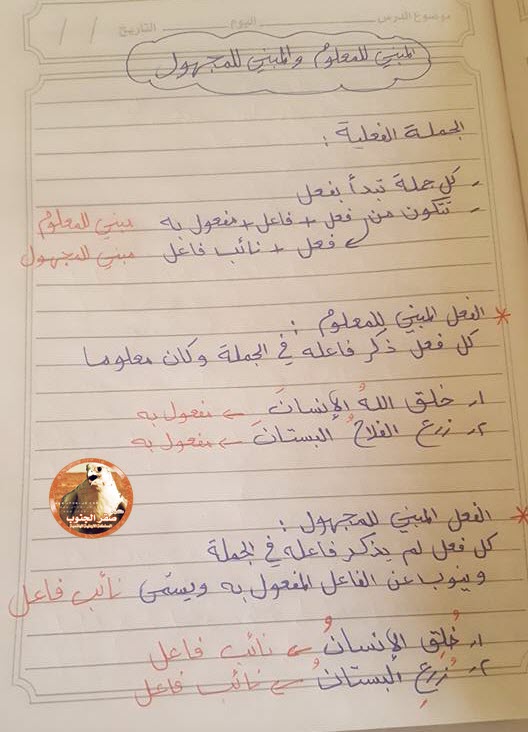 موضوع الدرس اليوم التاريخ / /
المبني للمعلوم والمبني للمجهول
الجملة الفعلية :
- كل جملة تبدأ بفعل
- تتكون من فعل + فاعل + مفعول به مبني للمعلوم
فعل + نائب فاعل مبني للمجهول
* الفعل المبني للمعلوم :
كل فعل ذُكر فاعله في الجملة وكان معلوما
١. خلق اللهُ الإنسانَ ← مفعول به
٢. زرع الفلاحُ البستانَ ← مفعول به
صقر الجنوب
* الفعل المبني للمجهول :
كل فعل لم يذكر فاعله في الجملة
وينوب عن الفاعل المفعول به ويسمّى نائب فاعل
١. خُلِق الإنسانُ ← نائب فاعل
٢. زُرِع البستانُ ← نائب فاعل